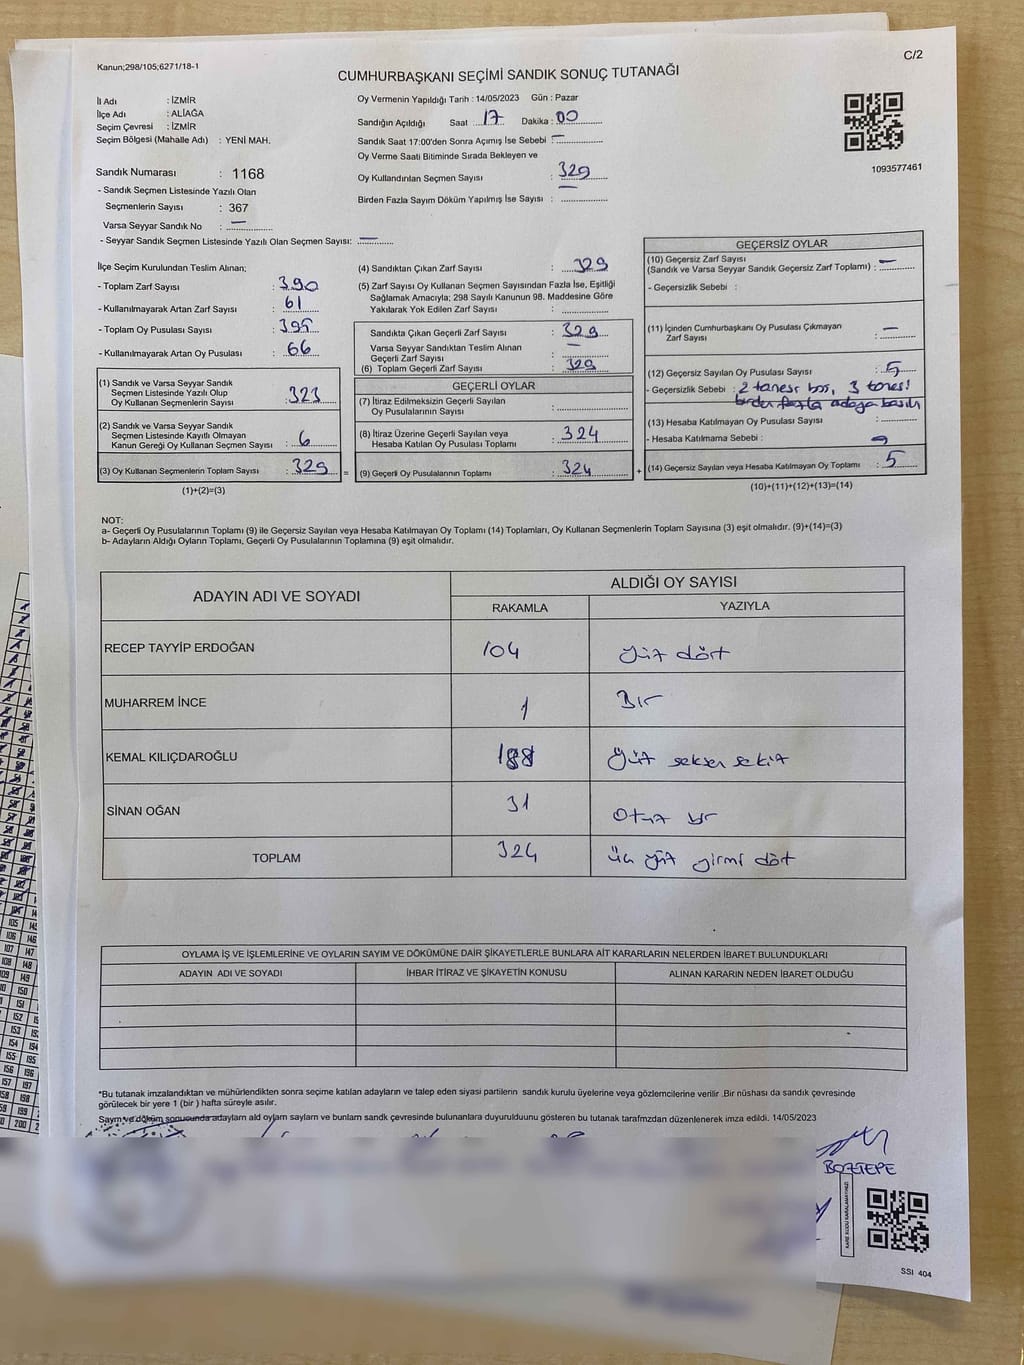 Kanun;298/105;6271/18-1
C/2
CUMHURBAŞKANI SEÇİMİ SANDIK SONUÇ TUTANAĞI
İl Adı : İZMİR
İlçe Adı : ALİAĞA
Seçim Çevresi : İZMİR
Seçim Bölgesi (Mahalle Adı) : YENİ MAH.
Sandık Numarası : 1168
- Sandık Seçmen Listesinde Yazılı Olan
Seçmenlerin Sayısı : 367
Varsa Seyyar Sandık No : —
- Seyyar Sandık Seçmen Listesinde Yazılı Olan Seçmen Sayısı: —
Oy Vermenin Yapıldığı Tarih : 14/05/2023 Gün : Pazar
Sandığın Açıldığı Saat : 17 Dakika : 00
Sandık Saat 17:00'den Sonra Açımış İse Sebebi : —
Oy Verme Saati Bitiminde Sırada Bekleyen ve
Oy Kullandırılan Seçmen Sayısı : 329
Birden Fazla Sayım Döküm Yapılmış İse Sayısı : —
1093577461
İlçe Seçim Kurulundan Teslim Alınan;
- Toplam Zarf Sayısı : 390
- Kullanılmayarak Artan Zarf Sayısı : 61
- Toplam Oy Pusulası Sayısı : 395
- Kullanılmayarak Artan Oy Pusulası : 66
(1) Sandık ve Varsa Seyyar Sandık
Seçmen Listesinde Yazılı Olup
Oy Kullanan Seçmenlerin Sayısı : 323
(2) Sandık ve Varsa Seyyar Sandık
Seçmen Listesinde Kayıtlı Olmayan
Kanun Gereği Oy Kullanan Seçmen Sayısı : 6
(3) Oy Kullanan Seçmenlerin Toplam Sayısı : 329 =
(1)+(2)=(3)
(4) Sandıktan Çıkan Zarf Sayısı : 329
(5) Zarf Sayısı Oy Kullanan Seçmen Sayısından Fazla İse, Eşitliği
Sağlamak Amacıyla; 298 Sayılı Kanunun 98. Maddesine Göre
Yakılarak Yok Edilen Zarf Sayısı :
Sandıkta Çıkan Geçerli Zarf Sayısı : 329
Varsa Seyyar Sandıktan Teslim Alınan
Geçerli Zarf Sayısı : —
(6) Toplam Geçerli Zarf Sayısı : 329
GEÇERLİ OYLAR
(7) İtiraz Edilmeksizin Geçerli Sayılan
Oy Pusulalarının Sayısı :
(8) İtiraz Üzerine Geçerli Sayılan veya
Hesaba Katılan Oy Pusulası Toplamı : 324
(9) Geçerli Oy Pusulalarının Toplamı : 324 +
GEÇERSİZ OYLAR
(10) Geçersiz Zarf Sayısı
(Sandık ve Varsa Seyyar Sandık Geçersiz Zarf Toplamı) : —
- Geçersizlik Sebebi :
(11) İçinden Cumhurbaşkanı Oy Pusulası Çıkmayan
Zarf Sayısı : —
(12) Geçersiz Sayılan Oy Pusulası Sayısı : 5
- Geçersizlik Sebebi : 2 tanesi boş, 3 tanesi
birden fazla adaya basılı
(13) Hesaba Katılmayan Oy Pusulası Sayısı :
- Hesaba Katılmama Sebebi :
(14) Geçersiz Sayılan veya Hesaba Katılmayan Oy Toplamı : 5
(10)+(11)+(12)+(13)=(14)
NOT:
a- Geçerli Oy Pusulalarının Toplamı (9) ile Geçersiz Sayılan veya Hesaba Katılmayan Oy Toplamı (14) Toplamları, Oy Kullanan Seçmenlerin Toplam Sayısına (3) eşit olmalıdır. (9)+(14)=(3)
b- Adayların Aldığı Oyların Toplamı, Geçerli Oy Pusulalarının Toplamına (9) eşit olmalıdır.
ADAYIN ADI VE SOYADI ALDIĞI OY SAYISI
RAKAMLA YAZIYLA
RECEP TAYYİP ERDOĞAN 104 yüz dört
MUHARREM İNCE 1 Bir
KEMAL KILIÇDAROĞLU 188 Yüz seksen sekiz
SİNAN OĞAN 31 Otuz bir
TOPLAM 324 Üç yüz yirmi dört
OYLAMA İŞ VE İŞLEMLERİNE VE OYLARIN SAYIM VE DÖKÜMÜNE DAİR ŞİKAYETLERLE BUNLARA AİT KARARLARIN NELERDEN İBARET BULUNDUKLARI
ADAYIN ADI VE SOYADI İHBAR İTİRAZ VE ŞİKAYETİN KONUSU ALINAN KARARIN NEDEN İBARET OLDUĞU
*Bu tutanak imzalandıktan ve mühürlendikten sonra seçime katılan adayların ve talep eden siyasi partilerin sandık kurulu üyelerine veya gözlemcilerine verilir .Bir nüshası da sandık çevresinde
görülecek bir yere 1 (bir ) hafta süreyle asılır.
Sayım ve döküm sonucunda adayların ald oylam sayların ve bunlarn sandk çevresinde bulunanlara duyurulduunu gösteren bu tutanak tarafmzdan düzenlenerek imza edildi. 14/05/2023
BOZTEPE
KARE KODU KARALAMAYINIZ!
SSI 404